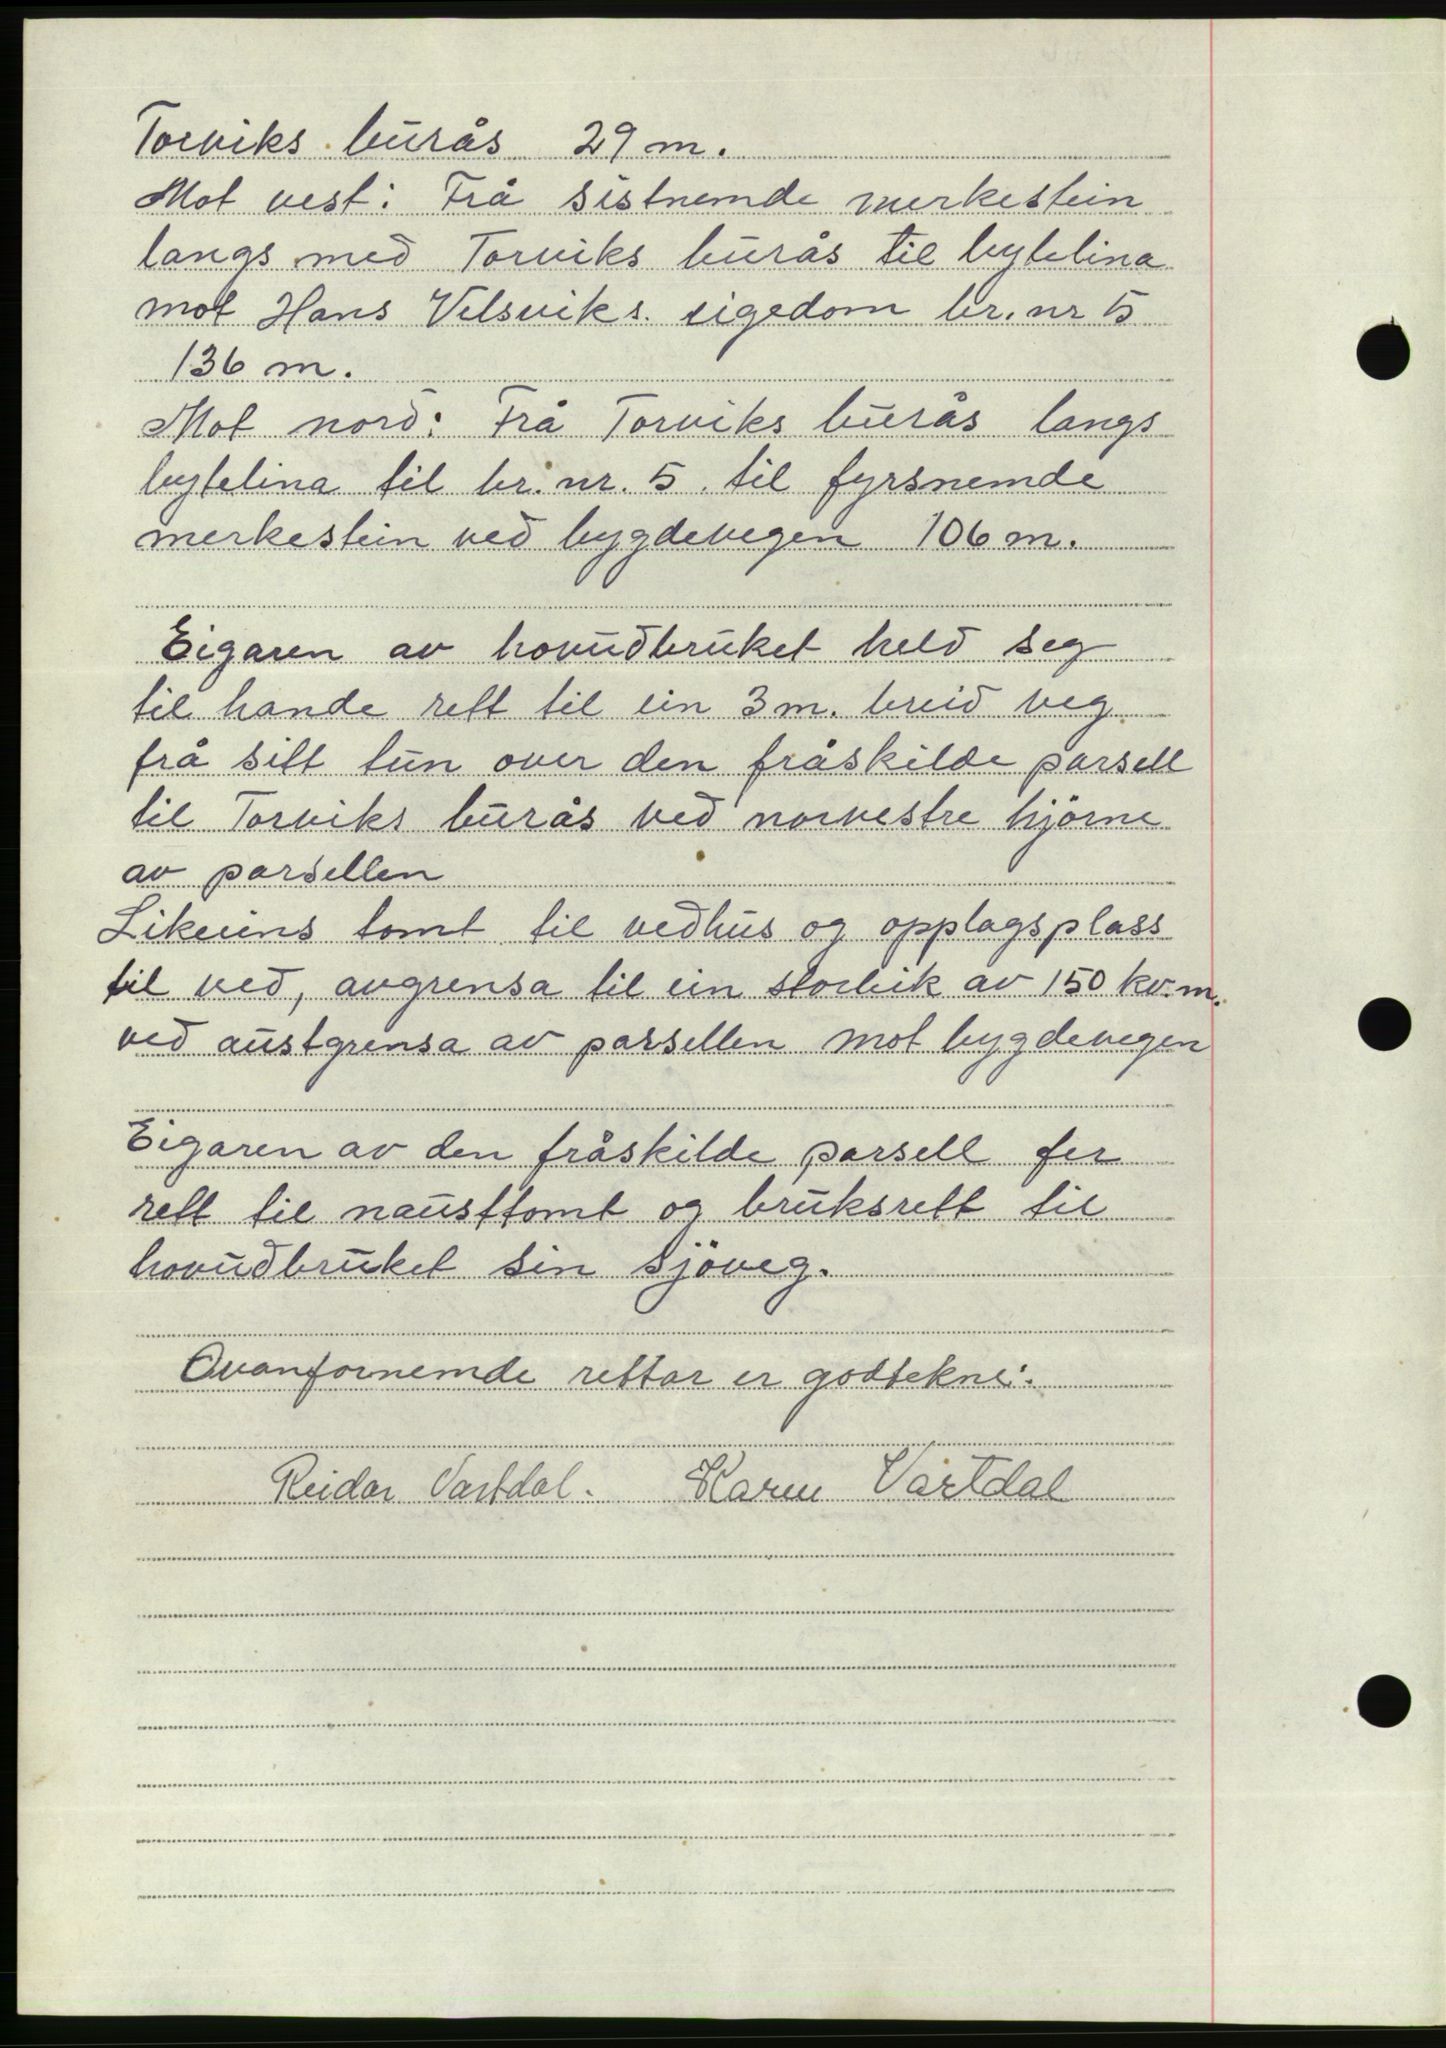 Torviks burås 29 m.
Mot vest: Frå sistnemde merkestein
langs med Torviks burås til bytelina
mot Hans Velsviks eigedom br. nr 5
136 m.
Mot nord: Frå Torviks burås langs
bytelina til br. nr. 5 til fyrsnemde
merkestein ved bygdevegen 106 m.
Eigaren av hovudbruket held seg
til hande rett til ein 3 m. breid veg
frå sitt tun over den fråskilde parsell
til Torviks burås ved norvestre hjörne
av parsellen
Likeeins tomt til vedhus og opplagsplass
til ved, avgrensa til ein storleik av 150 kv.m.
ved austgrensa av parsellen mot bygdevegen
Eigaren av den fråskilde parsell fer
rett til nausttomt og bruksrett til
hovudbruket sin sjöveg.
Ovanfornemde rettar er godtekne:
Reidar Vartdal. Karen Vartdal